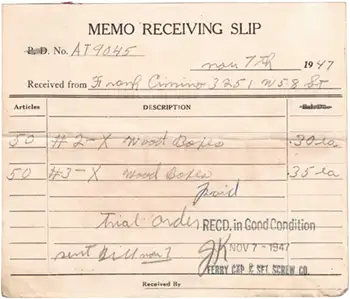 MEMO RECEIVING SLIP
P. D. No. AT9045
Nov 7th 1947
Received from Frank Cimino 3251 W 58 St
Articles DESCRIPTION
50 #2-X Wood Boxes .30 ea
50 #3-X Wood Boxes .35 ea
Paid
Trial order
RECD. in Good Condition
sent Bill Nov 7
JK NOV 7 - 1947
FERRY CAP & SET SCREW CO.
Received By